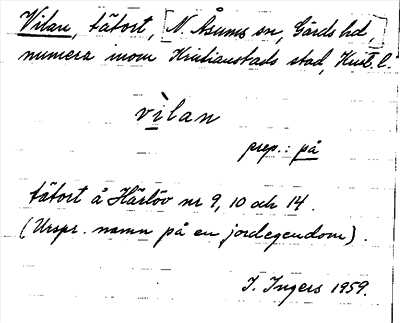 Vilan, tätort, [N. Åsums sn, Gärds hd,]
numera inom Kristianstads stad, Krist. l.
vìlan
prep.: på
tätort å Härlöv nr 9, 10 och 14.
(Urspr. namn på en jordegendom).
I. Ingers 1959.